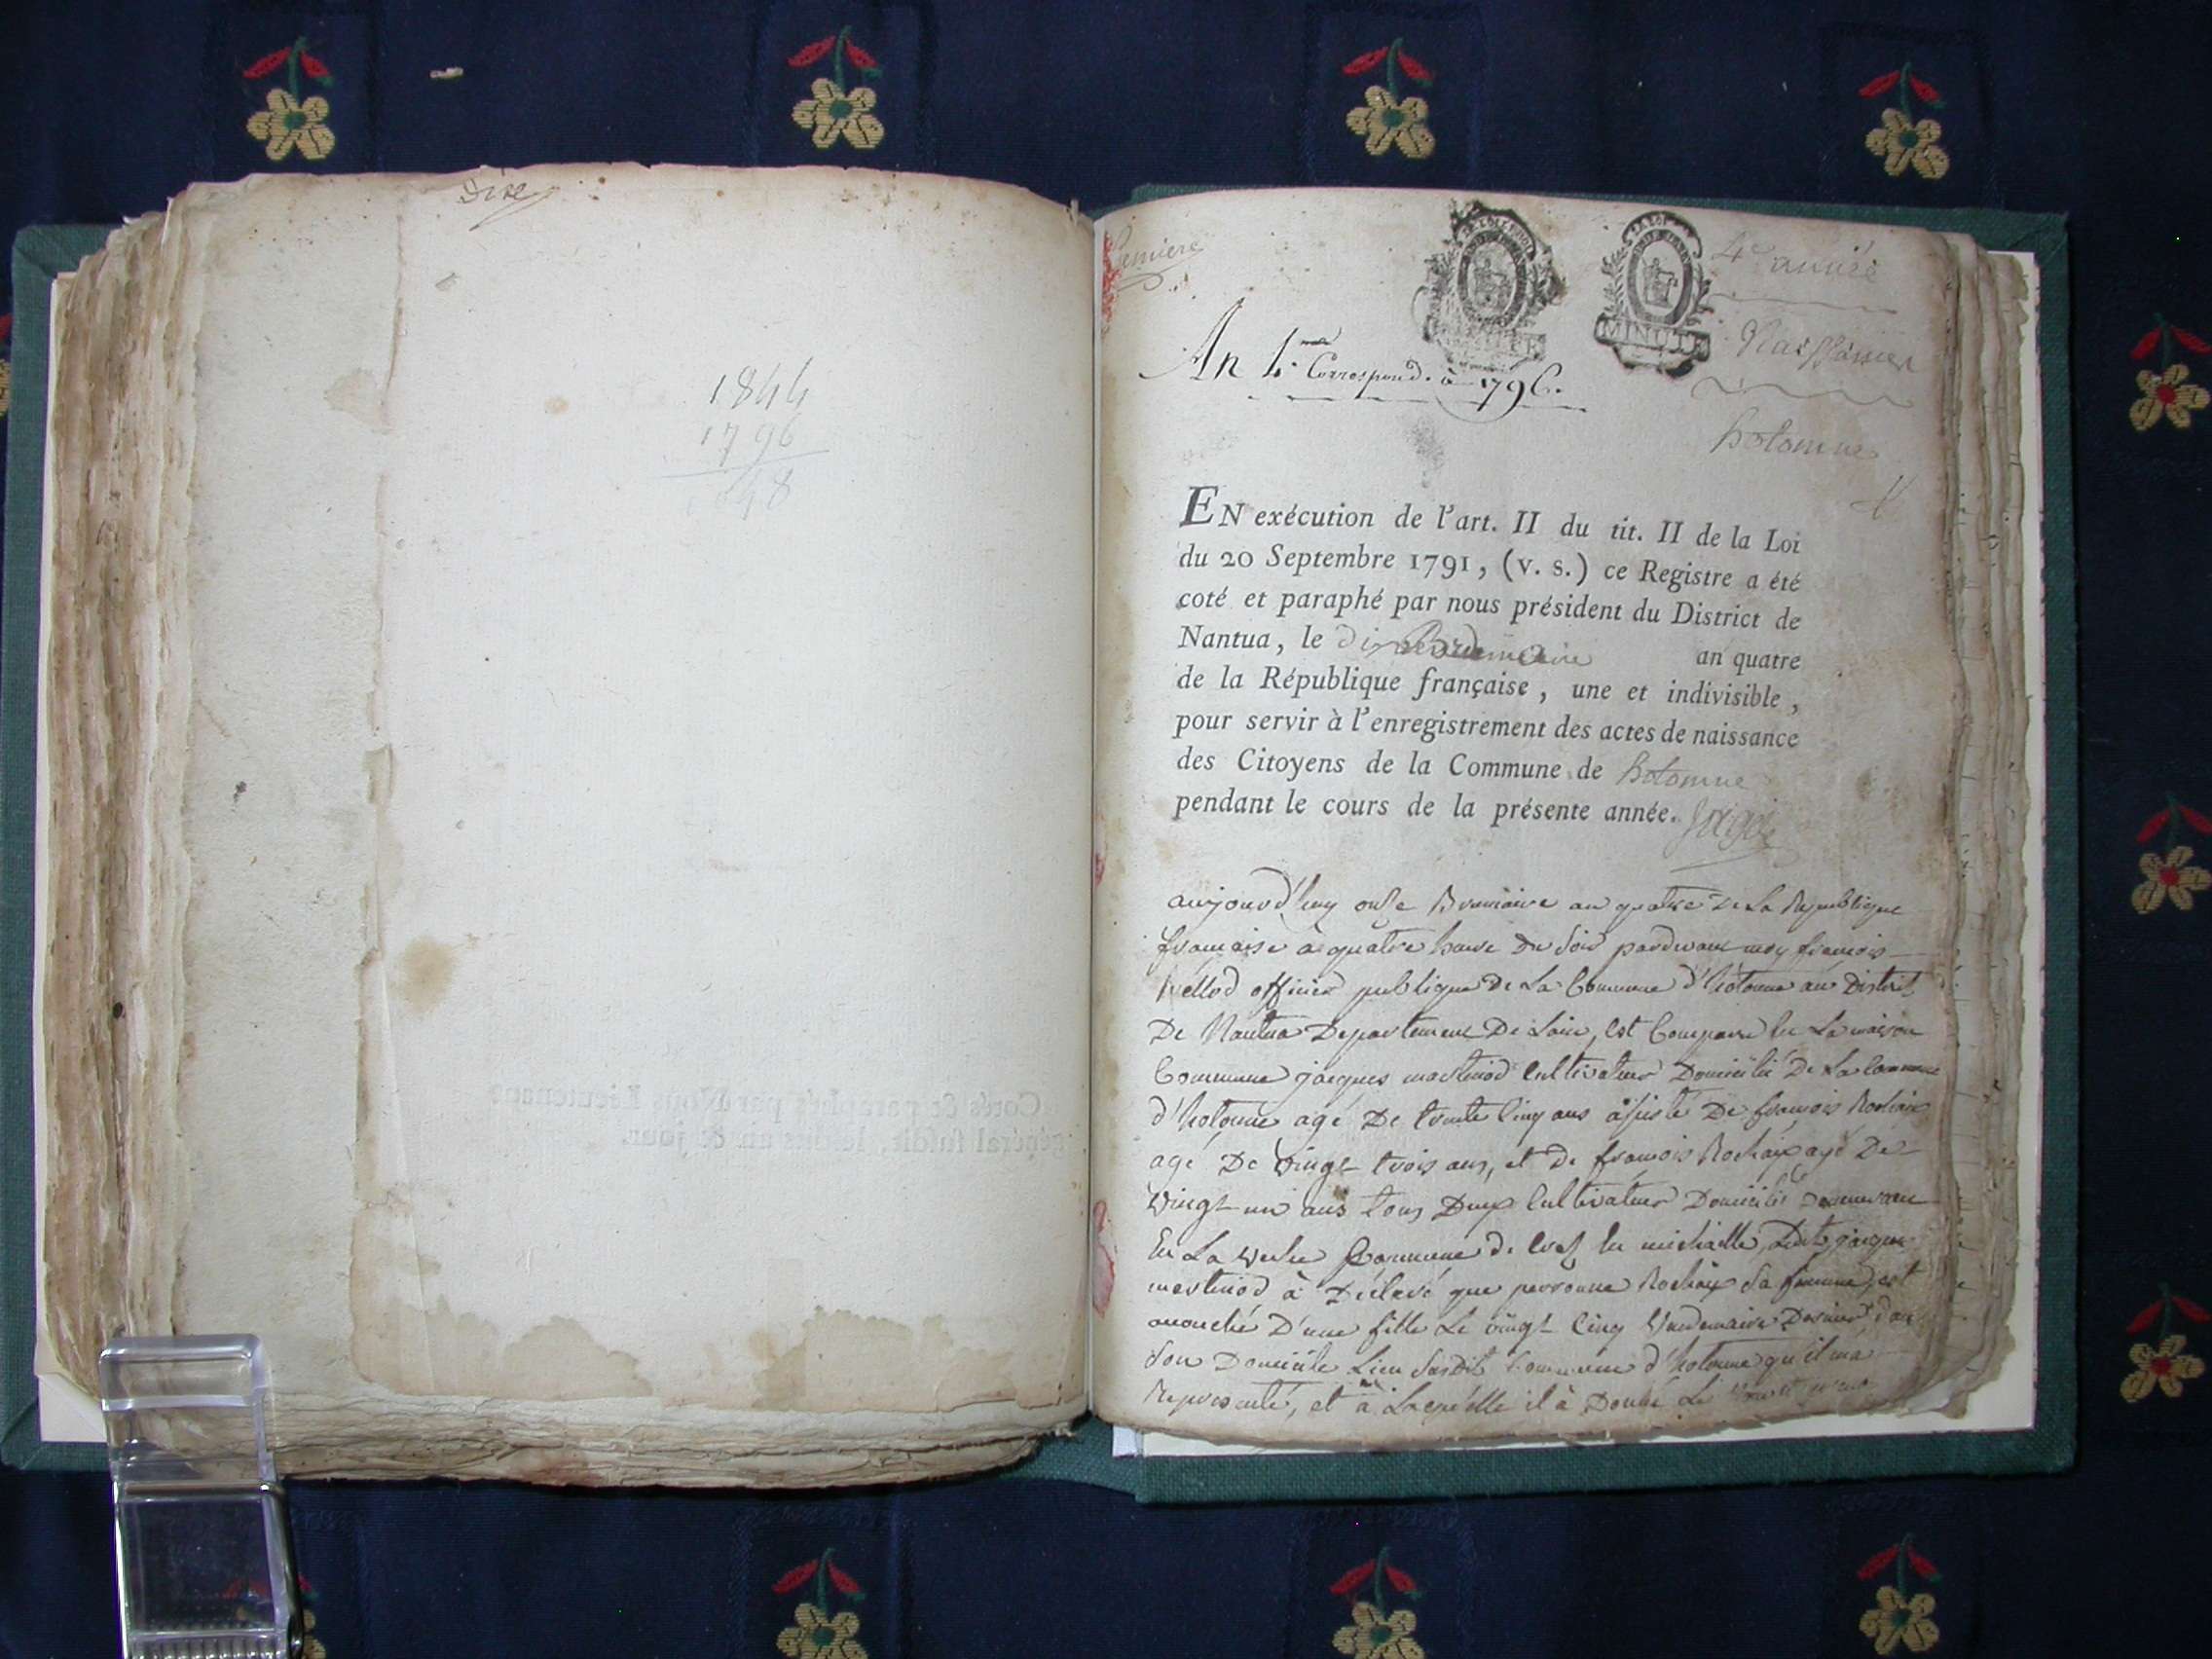 Dixe
1844
1796
48
Cotés & paraphés par Nous Lieutenant
général susdit, les dits an & jour.
premiere
MINUTE
4e année
Naissances
hotonne
An 4.me Correspond. à 1796.
EN exécution de l'art. II du tit. II de la Loi
du 20 Septembre 1791, (v. s.) ce Registre a été
coté et paraphé par nous président du District de
Nantua, le dix an quatre
de la République française, une et indivisible,
pour servir à l'enregistrement des actes de naissance
des Citoyens de la Commune de hotonne
pendant le cours de la présente année.
aujourd'huy onze Brumaire an quatre De La Republique
française à quatre heure Du Soir pardevant moy françois
officier publique De La Commune d'hotonne au District
De Nantua Departement De Lain, est Comparu En La maison
Commune jacques martinod Cultivateur Domicilié De La Commune
d'hotonne agé De trente Cinq ans assisté De françois Rochaix
agé De Vingt trois ans, et De françois Rochaix agé De
Vingt un ans tous Deux Cultivateur Domiciliés
En La Commune de En michaille, Ledit jacques
martinod à Déclaré que perronne Rochaix Sa femme, est
accouchée D'une fille Le vingt Cinq Vendemaire Dernier dans
Son Domicile Lieu Susdit Commune d'hotonne qu'il m'a
Representé, et a Laquelle il à Donné Le